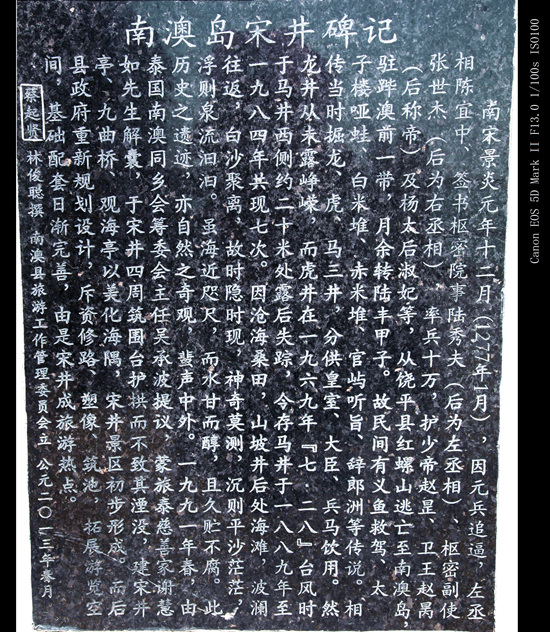 南澳岛宋井碑记
南宋景炎元年十二月（1277年1月），因元兵追逼，左丞
相陈宜中、签书枢密院事陆秀夫（后为左丞相）、枢密副使
张世杰（后为右丞相）率兵十万，护少帝赵昰、卫王赵昺
（后称帝）及杨太后淑妃等，从饶平县红螺山逃亡至南澳岛，
驻跸澳前一带，月余转陆丰甲子。故民间有义鱼救驾、太
子楼哑蛙、白米堆、赤米堆、官屿听旨、辞郎洲等传说。相
传当时掘龙、虎、马三井，分供皇室、大臣、兵马饮用。然
龙井从未露峥嵘，而虎井在一九六九年『七·二八』台风时
于马井西侧约二十米处露后失踪，今存马井于一八八九年至
一九八四年共现七次。因沧海桑田，山坡井后处海滩，波澜
往返，白沙聚离，故时隐时现，神奇莫测，沉则平沙茫茫，
浮则泉流汩汩。虽海近咫尺，而水甘而醇，且久贮不腐。此
历史之遗迹，亦自然之奇观，蜚声中外。一九九一年春，由
泰国南澳同乡会筹委会主任吴承波提议，蒙旅泰慈善家谢慧
如先生解囊，于宋井四周筑围台护拱而不致其湮没，建宋井
亭、九曲桥、观海亭以美化海隅，宋井景区初步形成。而后
县政府重新规划设计，斥资修路、塑像、筑池，拓展游览空
间，基础配套日渐完善，由是宋井成旅游热点。
蔡起贤 林俊聪撰 南澳县旅游工作管理委员会立 公元二〇一三年春月
Canon EOS 5D Mark II F13.0 1/100s ISO100